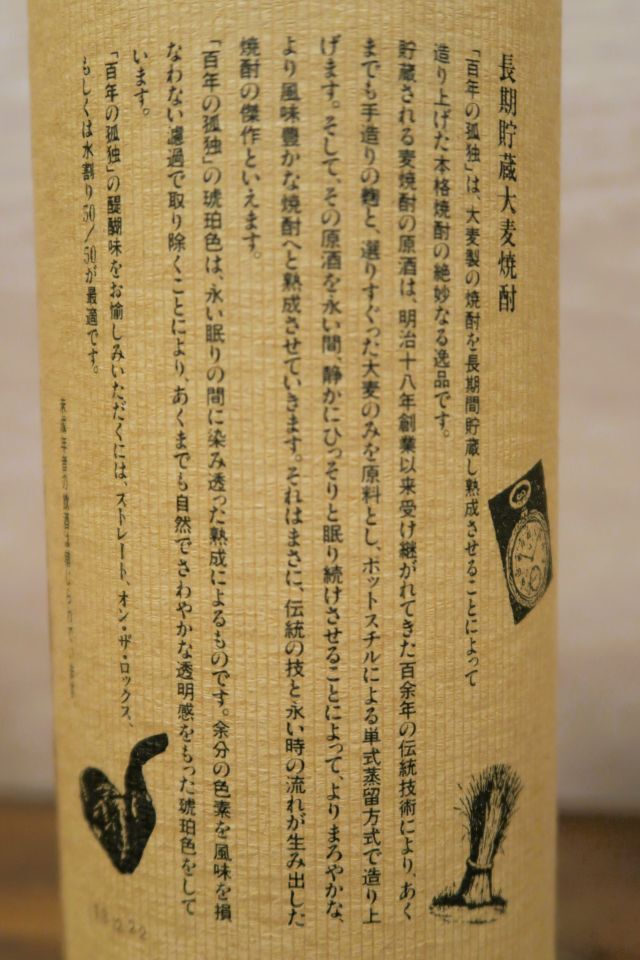 長期貯蔵大麦焼酎
「百年の孤独」は、大麦製の焼酎を長期間貯蔵し熟成させることによって
造り上げた本格焼酎の絶妙なる逸品です。
貯蔵される麦焼酎の原酒は、明治十八年創業以来受け継がれてきた百余年の伝統技術により、あく
までも手造りの麹と、選りすぐった大麦のみを原料とし、ポットスチルによる単式蒸留方式で造り上
げます。そして、その原酒を永い間、静かにひっそりと眠り続けさせることによって、よりまろやかな、
より風味豊かな焼酎へと熟成させていきます。それはまさに、伝統の技と永い時の流れが生み出した
焼酎の傑作といえます。
「百年の孤独」の琥珀色は、永い眠りの間に染み透った熟成によるものです。余分の色素を風味を損
なわない濾過で取り除くことにより、あくまでも自然でさわやかな透明感をもった琥珀色をして
います。
「百年の孤独」の醍醐味をお愉しみいただくには、ストレート、オン・ザ・ロックス、
もしくは水割り50/50が最適です。
未成年者の飲酒は禁じられて